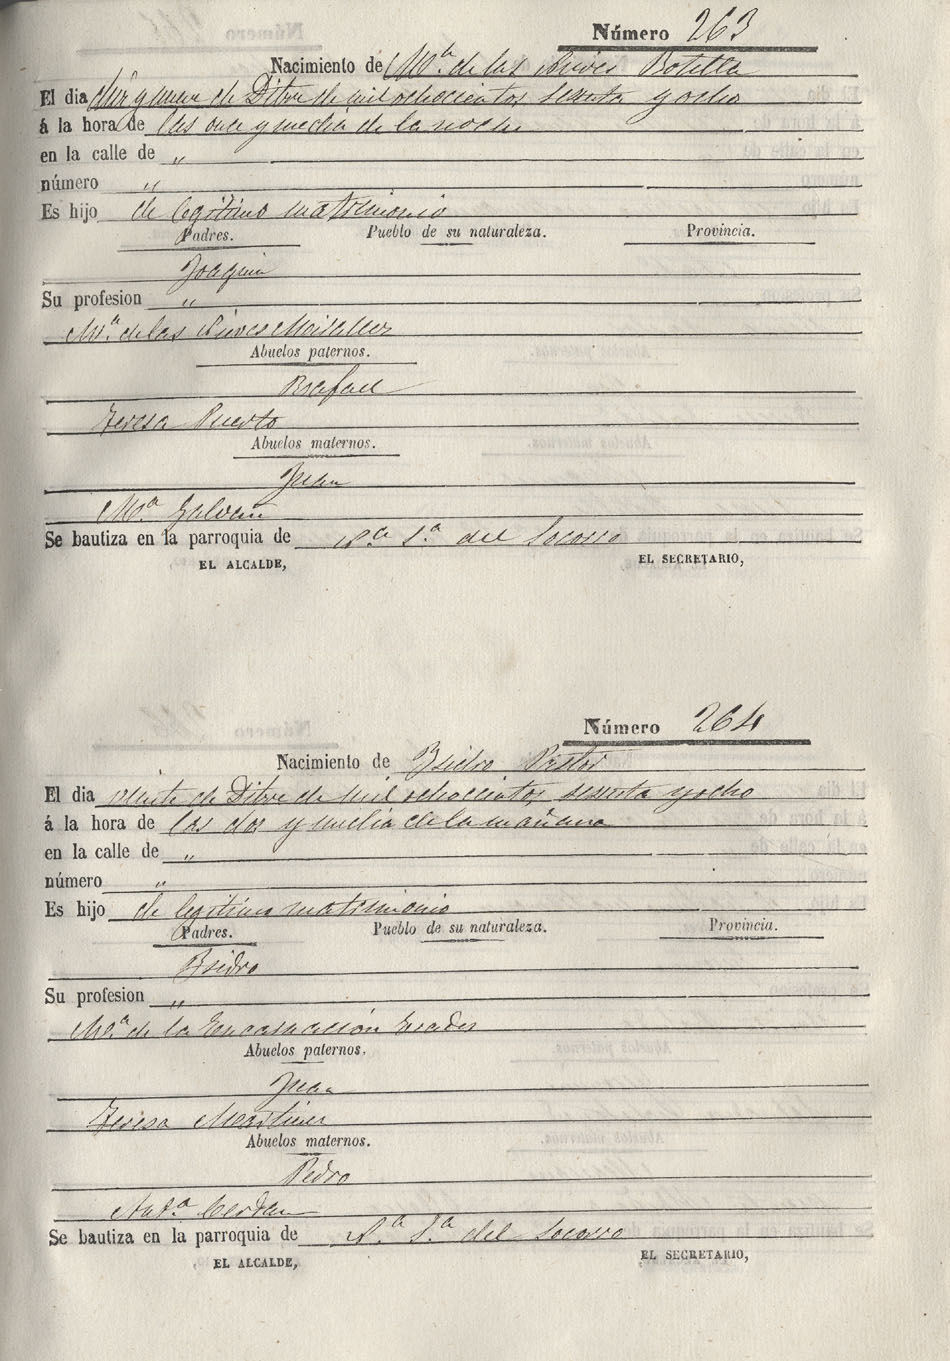 Número 263
Nacimiento de Mª. de las Nieves Botella
El dia diez y nueve de Dibre de mil ochocientos sesenta y ocho
á la hora de las once y media de la noche
en la calle de "
número "
Es hijo de legitimo matrimonio
Padres. Pueblo de su naturaleza. Provincia.
Joaquin
Su profesion "
Mª. de las Nieves
Abuelos paternos.
Rafael
Teresa Puerto
Abuelos maternos.
Juan
Mª. Galvañ
Se bautiza en la parroquia de Nª. Sª. del Socorro
EL ALCALDE, EL SECRETARIO,
Número 264
Nacimiento de Isidro Pastor
El dia veinte de Dibre de mil ochocientos sesenta y ocho
á la hora de las dos y media de la mañana
en la calle de "
número "
Es hijo de legitimo matrimonio
Padres. Pueblo de su naturaleza. Provincia.
Isidro
Su profesion "
Mª. de la Encarnación
Abuelos paternos.
Juan
Teresa Martinez
Abuelos maternos.
Pedro
Antª. Cerdan
Se bautiza en la parroquia de Nª. Sª. del Socorro
EL ALCALDE, EL SECRETARIO,